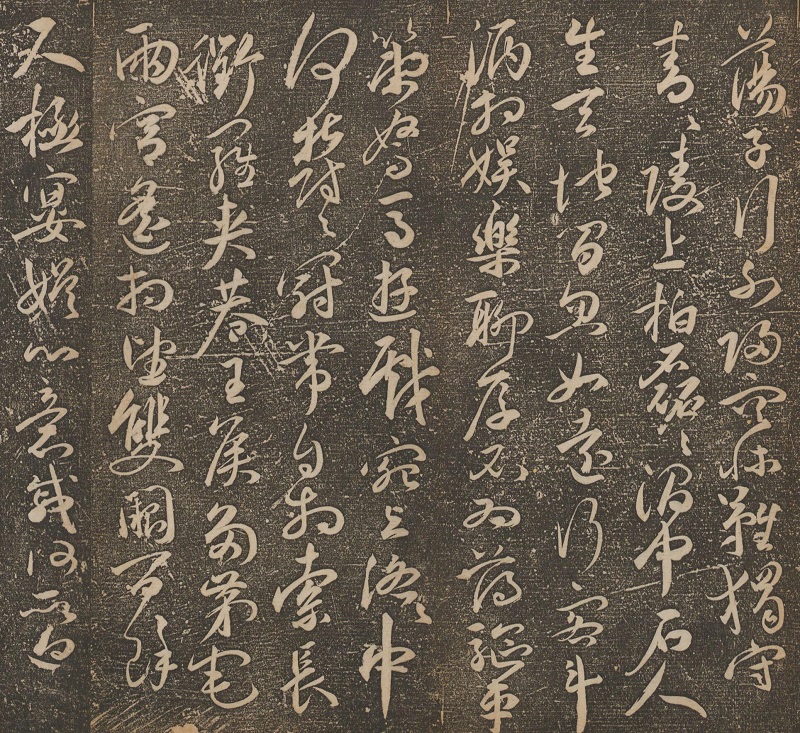 蕩子行不歸空床難獨守
青〻陵上柏磊〻澗中石人
生天地間忽如遠行客斗
酒相娛樂聊厚不為薄驅車
策駑馬遊戲宛與洛〻中
何鬱〻冠帶自相索長
衢羅夾巷王侯多第宅
兩宮遙相望雙闕百餘
尺極宴娛心意戚何所迫